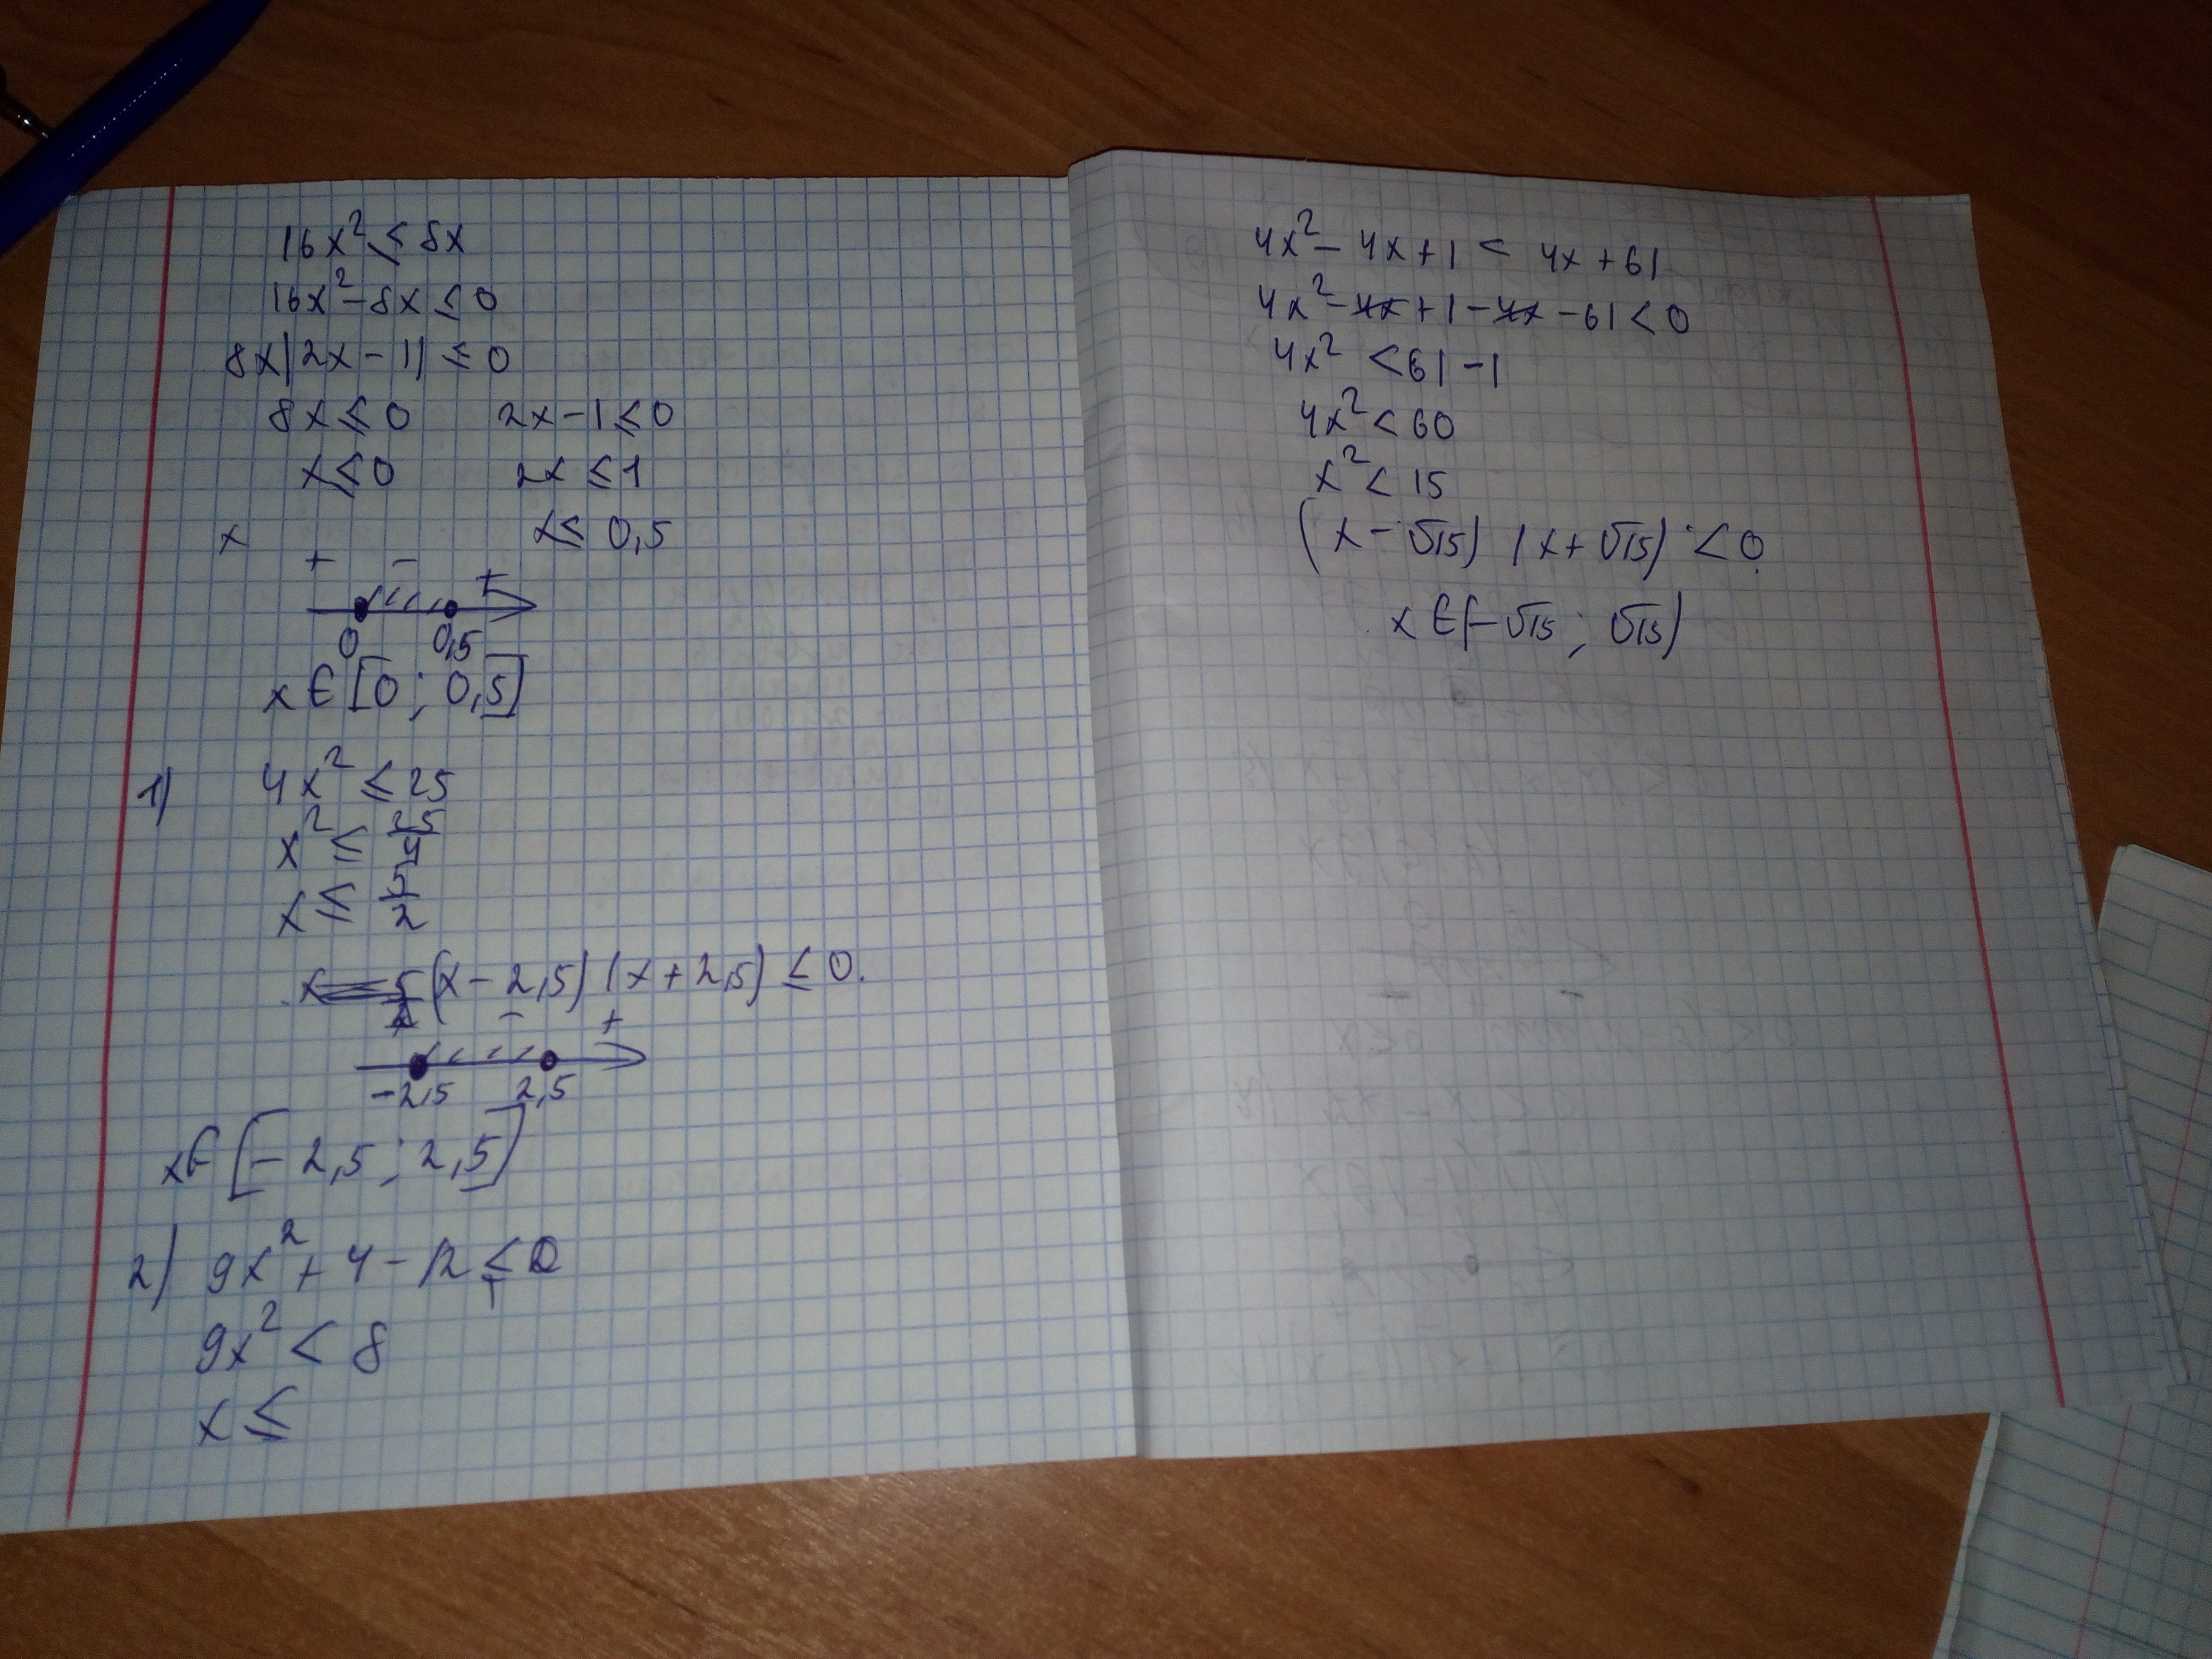 16x² ≤ 8x
16x² - 8x ≤ 0
8x(2x - 1) ≤ 0
8x ≤ 0 2x - 1 ≤ 0
x ≤ 0 2x ≤ 1
x x ≤ 0,5
+ - +
0 0,5
x ∈ [0 ; 0,5]
1) 4x² ≤ 25
x² ≤ 25/4
x ≤ 5/2
(x - 2,5) (x + 2,5) ≤ 0.
- +
-2,5 2,5
x ∈ [-2,5 ; 2,5]
2) 9x² + 4 - 12 ≤ 0
9x² < 8
x ≤
4x² - 4x + 1 < 4x + 61
4x² - 4x + 1 - 4x - 61 < 0
4x² < 61 - 1
4x² < 60
x² < 15
(x - √15) (x + √15) < 0
x ∈ (-√15 ; √15)